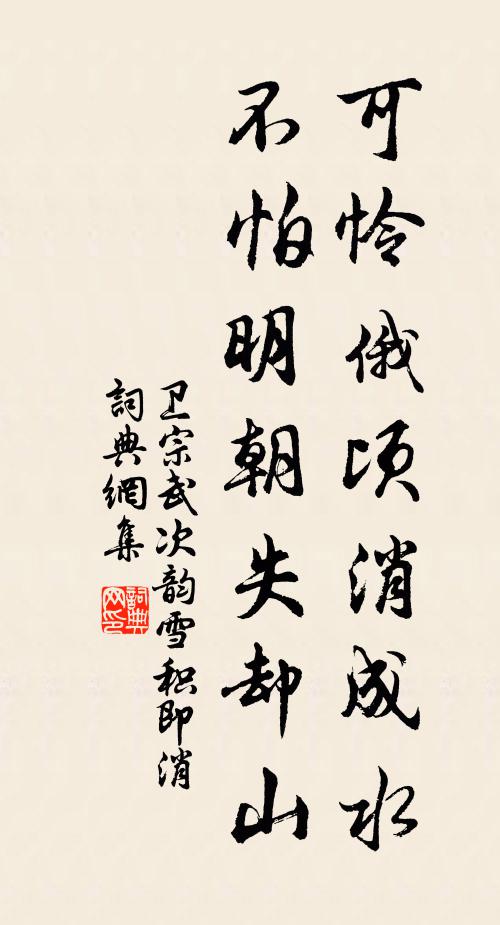 可怜俄顷消成水
不怕明朝失却山
卫宗武次韵雪积即消
詞典網集
詞典网印